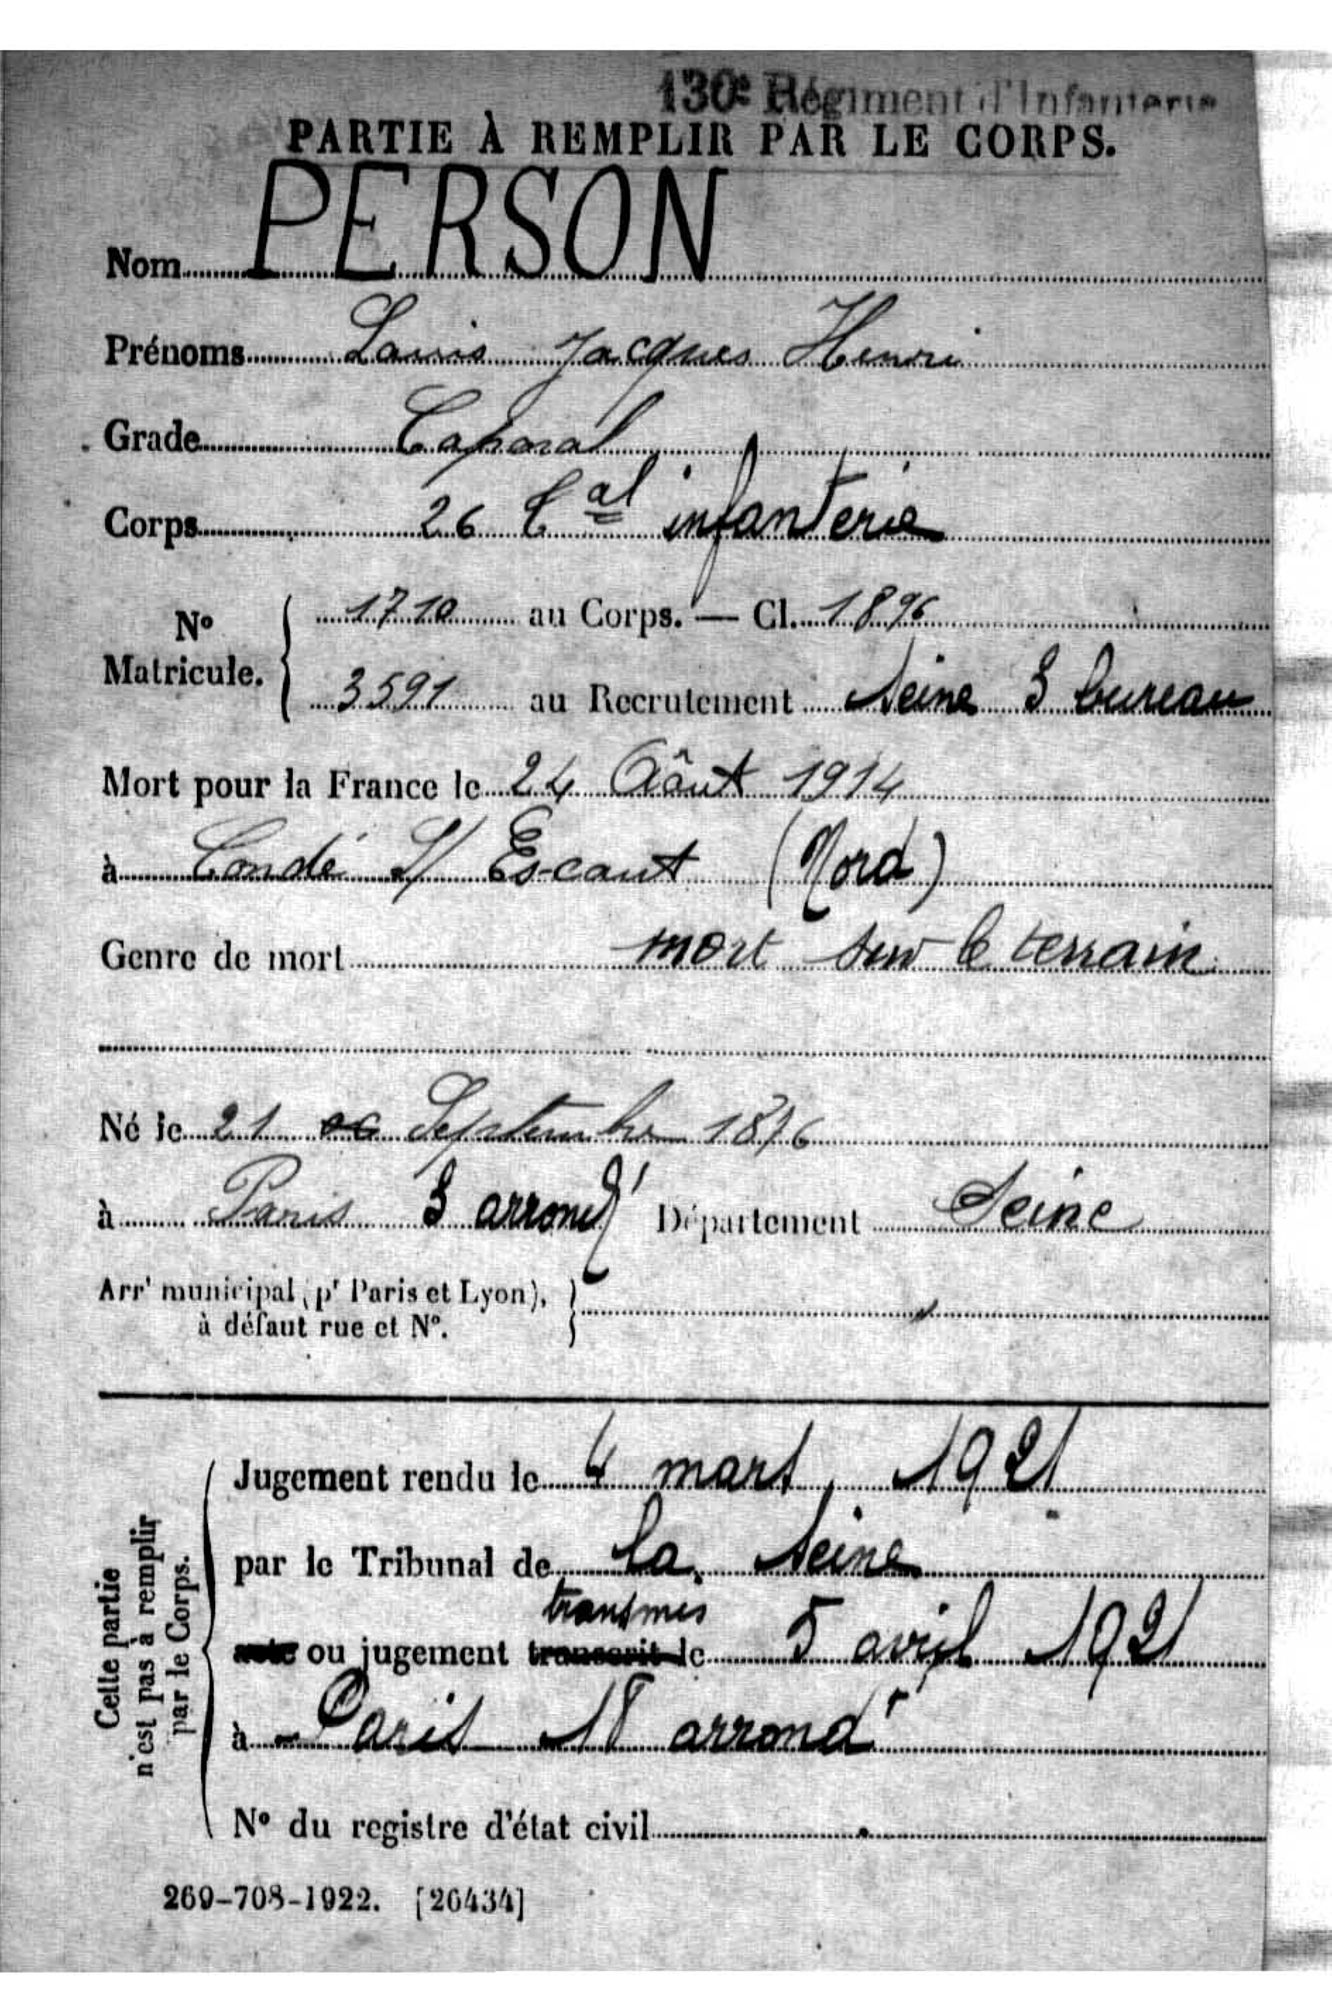 130e Régiment d'Infanterie
PARTIE À REMPLIR PAR LE CORPS.
Nom PERSON
Prénoms Louis Jacques Henri
Grade Caporal
Corps 26 Cal infanterie
No Matricule. 1710 au Corps. — Cl. 1896
3591 au Recrutement Seine 3 bureau
Mort pour la France le 24 Août 1914
à Condé S/ Escaut (Nord)
Genre de mort mort sur le terrain
Né le 21 Septembre 1876
à Paris 3 arrondt Département Seine
Arrt municipal (pr Paris et Lyon),
à défaut rue et No.
Cette partie
n'est pas à remplir
par le Corps.
Jugement rendu le 4 mars 1921
par le Tribunal de la Seine
transmis
acte ou jugement transcrit le 5 avril 1921
à Paris 18 arrondt
No du registre d'état civil
269-708-1922. [26434]